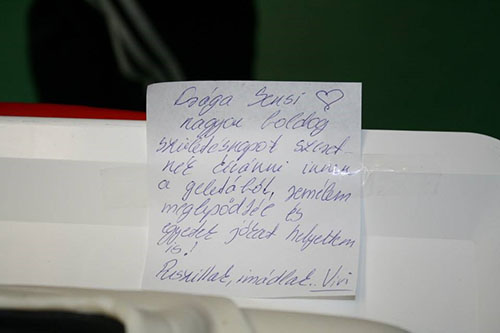 Drága Sensi ♡
nagyon boldog
születésnapot szeret
nék kívánni innen
a geletából, remélem
meglepődtél és
egyetek jókat helyettem
is!
Puszillak, imádlak.. Vivi